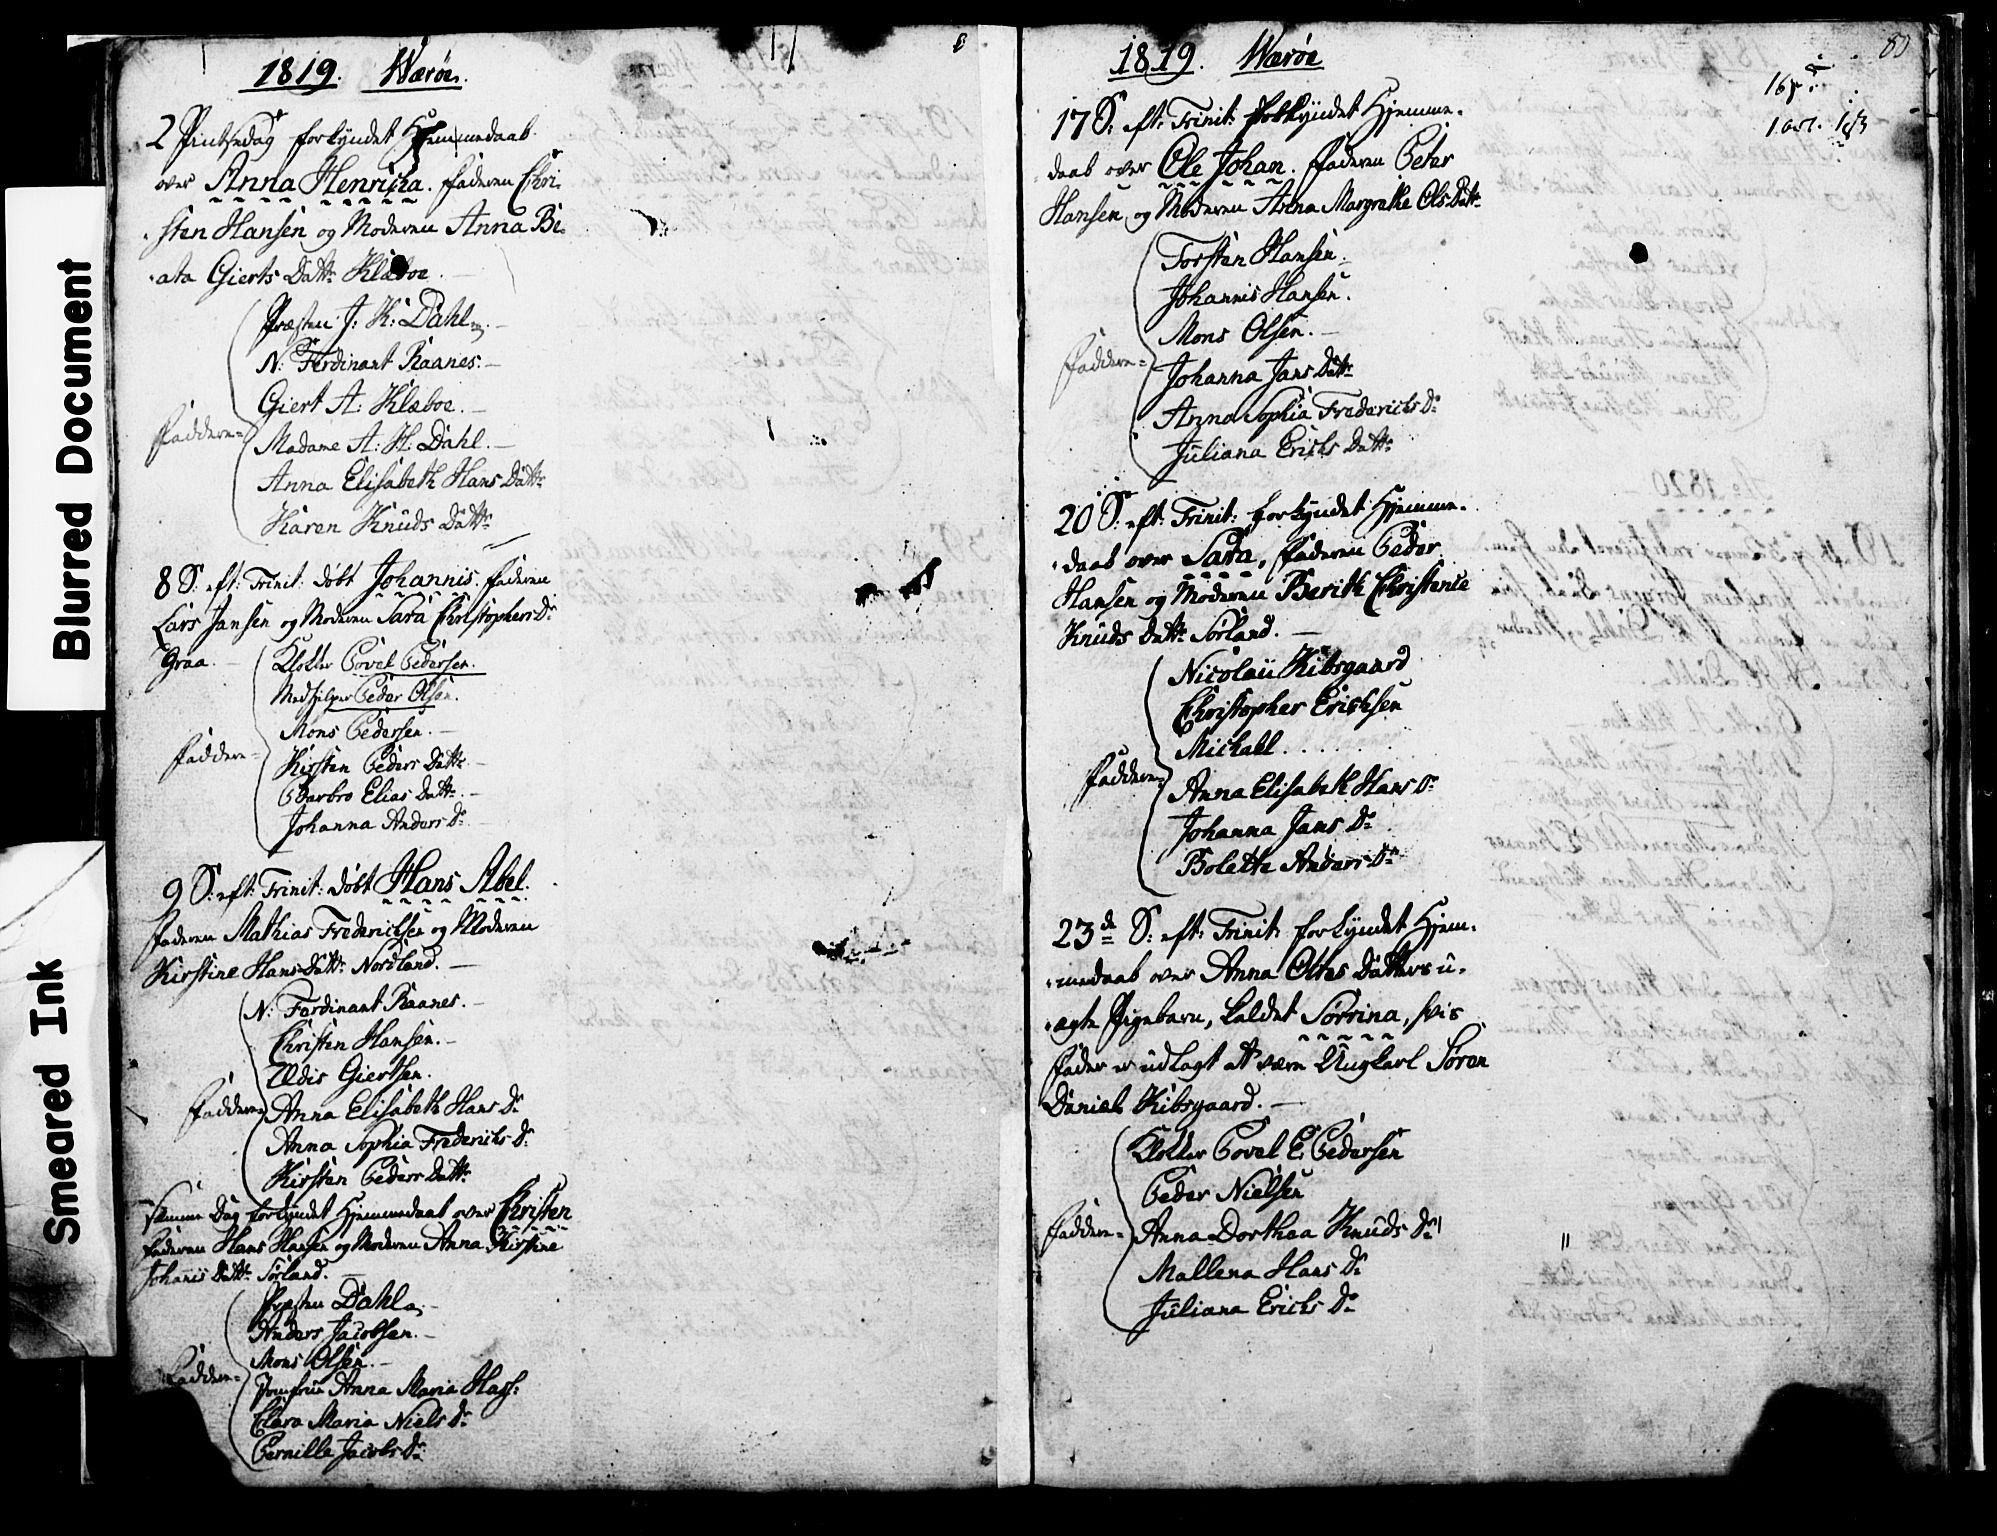 Blurred Document
Smeared Ink
1819. Værøe.
2 Pintsedag forkyndet Hjemmedaab
over Anna Henricha. faderen Chri-
sten Hansen og Moderen Anna Be-
ata Gierts Dattr Klæboe.
Præsten J: K: Dahl
N: Ferdinant Raanes.
Giert A: Klæboe.
Faddere=
Madame A: H: Dahl.
Anna Elisabeth Hans Dattr
Karen Knuds Dattr
8 S: eft: Trinit: døbt Johannis. faderen
Lars Jansen og Moderen Sara Christophers Dr
Graa.
Klokker Povel Pedersen.
Medhjelper Peder Olsen.
Mons Pedersen.
Faddere=
Kirsten Peders Dattr
Barbro Elias Dattr
Johanna Anders Dr
9 S: eft: Trinit: døbt Hans Abel.
faderen Mathias Frederichsen og Moderen
Kirstine Hans Dattr Nordland.
N: Ferdinant Raanes.
Christen Hansen.
Giertsen.
Faddere
Anna Elisabeth Hans Dr
Anna Sophia Frederichs Dr
Kirsten Peders Dattr
Samme Dag forkyndet Hjemmedaab over Christen
faderen Hans Hansen og Moderen Anna Kirstine
Johanis Dattr Sørland.
Præsten Dahl
Anders Jacobsen.
Mons Olsen.
Faddere=
Jomfrue Anna Maria Hass:
Clara Maria Niels Dr
Pernille Jacobs Dr
80
1819. Værøe
17 S: eft: Trinit: forkyndet Hjemme-
daab over Ole Johan. faderen Peter
Hansen og Moderen Anna Margrethe Ols Dattr
Torsten Hansen.
Johannis Hansen.
Mons Olsen.
Faddere=
Johanna Jans Dattr
Anna Sophia Frederichs Dr
Juliana Erichs Dattr
20 S: eft: Trinit: forkyndet Hjemme-
daab over Sara, faderen Peder
Hansen og Moderen Berith Christence
Knuds Dattr Sørland.
Nicolaii Kibsgaard
Christopher Erichsen
Michael . . . . .
Faddere=
Anna Elisabeth Hans Dr
Johanna Jans Dr
Bolette Anders Dr
23de S: eft: Trinit: forkyndet Hjem-
medaab over Anna Ottes Datters u-
ægte Pigebarn, kaldet Sørrina, hvis
fader er udlagt at være Ungkarl Søren
Daniels Kibsgaard.
Klokker Povel E. Pedersen
Peder Nielsen
Faddere=
Anna Dorthea Knuds Dr
Mallena Hans Dr
Juliana Erichs Dr